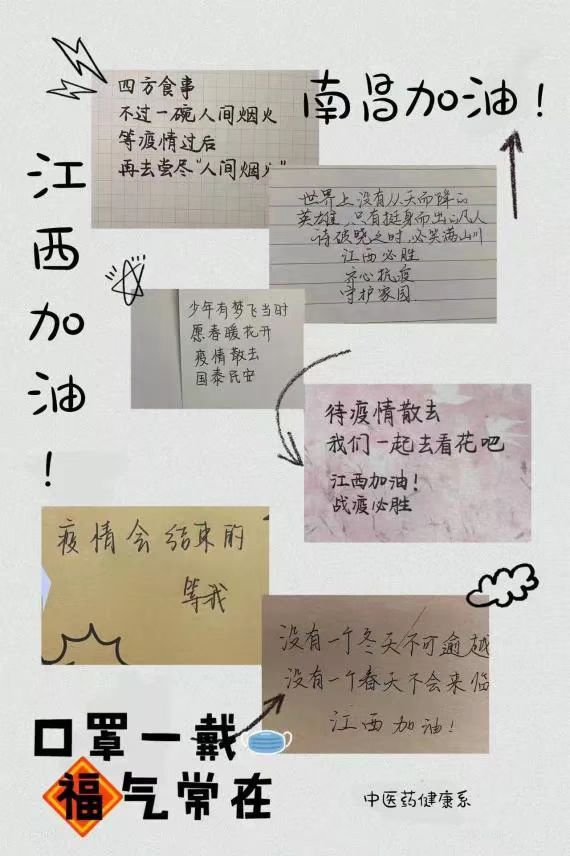 南昌加油!
江西加油!
四方食事
不过一碗人间烟火
等疫情过后
再去尝尽"人间烟火"
世界上没有从天而降的
英雄,只有挺身而出的凡人
待破晓之时,必笑满山川
江西必胜
齐心抗疫
守护家园
少年有梦飞当时
愿春暖花开
疫情散去
国泰民安
待疫情散去
我们一起去看花吧
江西加油!
战疫必胜
疫情会结束的
等我
没有一个冬天不可逾越
没有一个春天不会来临
江西加油!
口罩一戴
福气常在
中医药健康系